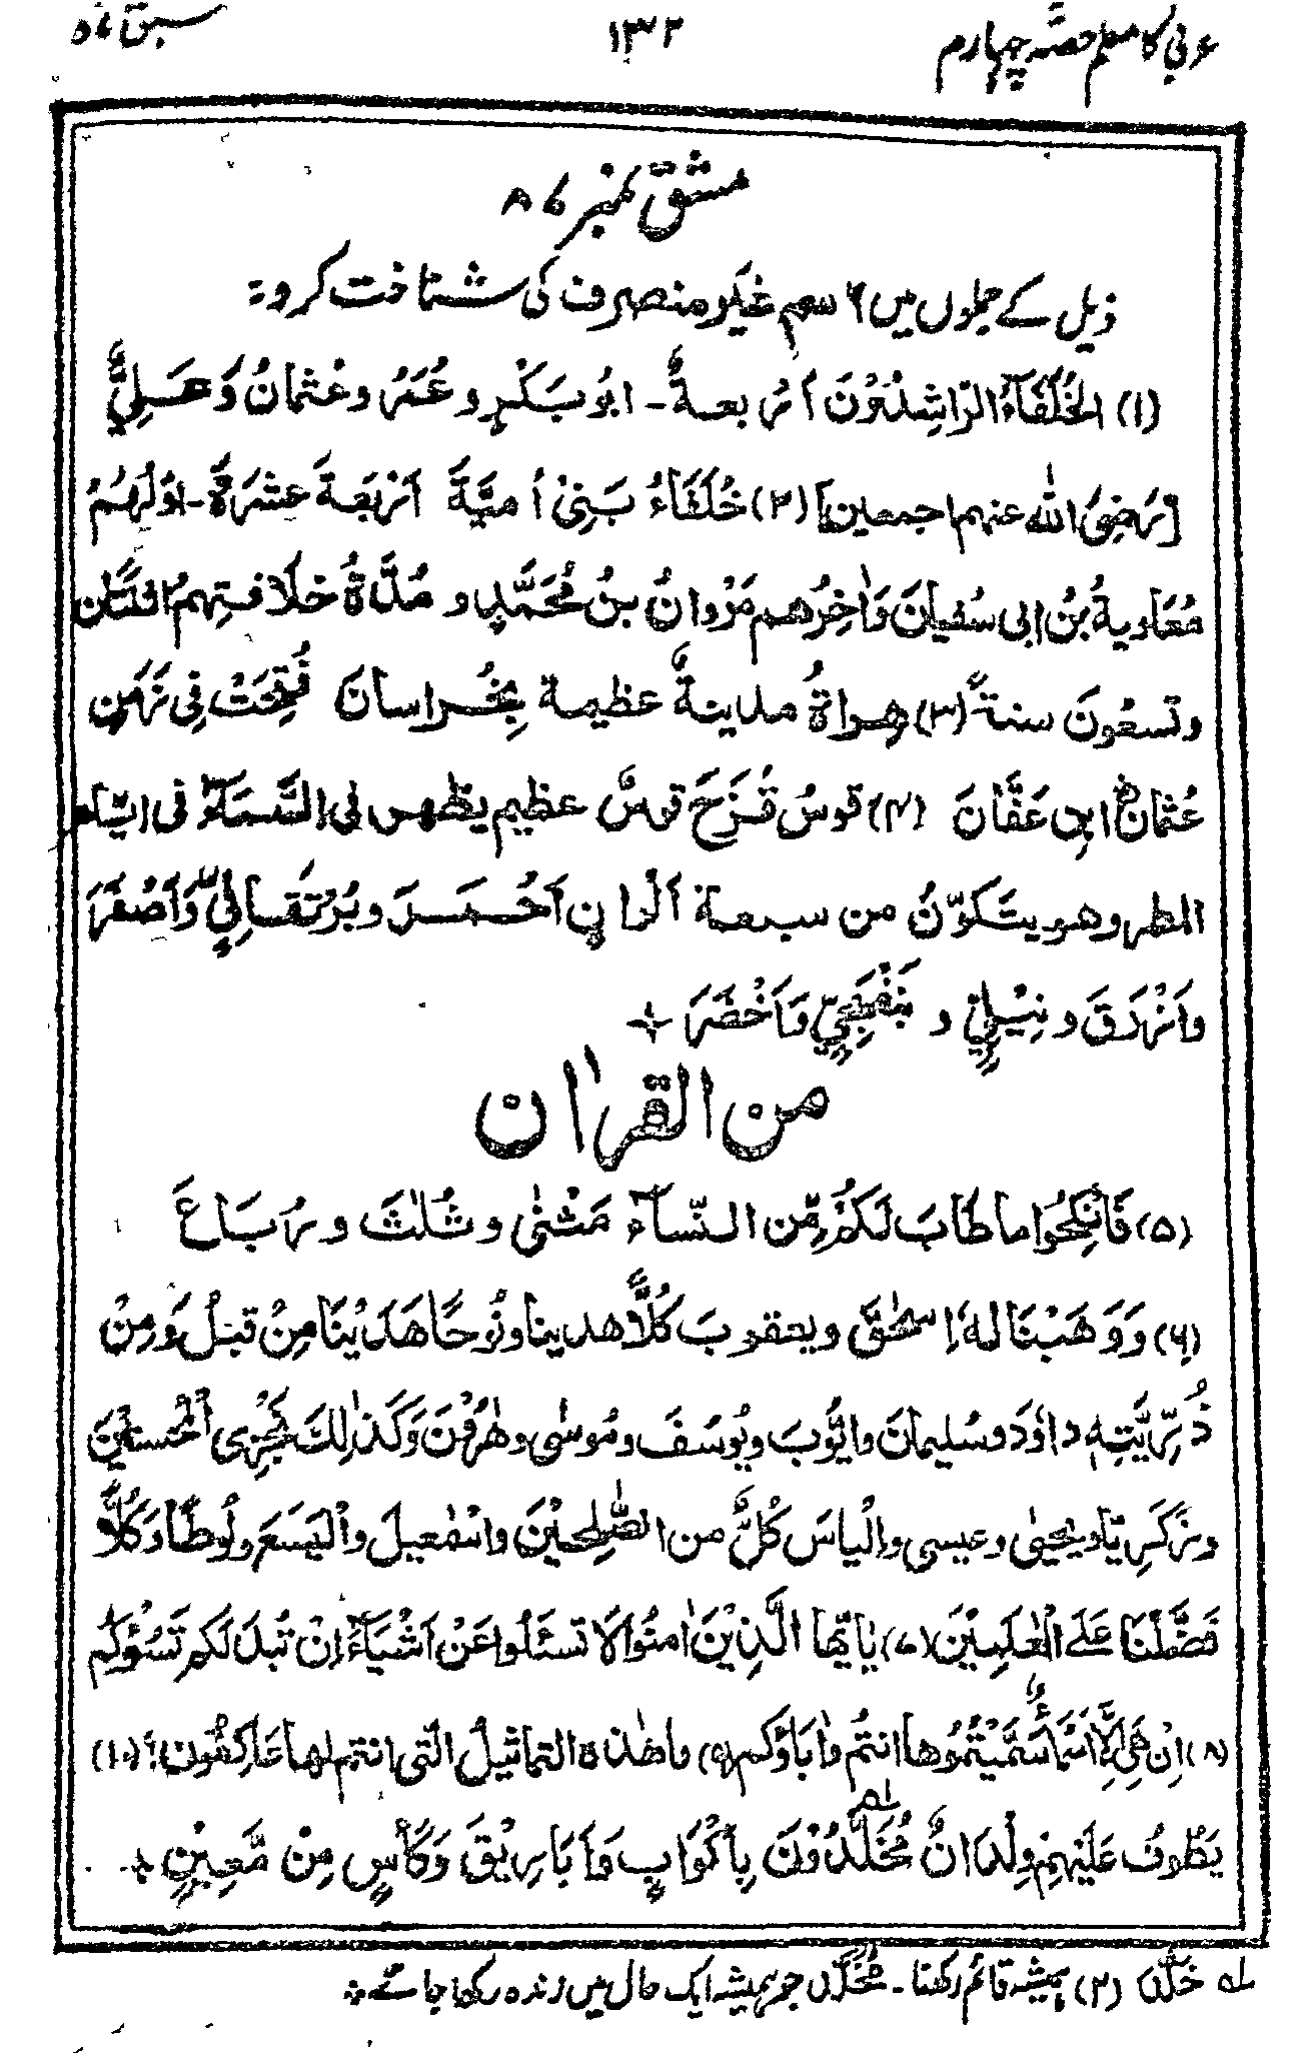 عربی کا معلم حصّہ چہارم ۱۳۲ سبق ۵۷
مشق نمبر ۸۷
ذیل کے جملوں میں اسم غیر منصرف کی شناخت کرو:
(۱) الخُلَفَآءُ الرّاشِدُوْنَ أَرْبعةٌ - ابُو بَكْرٍ و عُمَرُ و عُثمانُ وَ عَلِيٌّ
[رَضِیَ اللّٰه عنهم اجمعين] (۲) خُلَفَاءُ بَنِیْ أُميَّةَ أَرْبَعَةَ عَشَرَةَ - اوّلُهُمْ
مُعَاويةُ بْنُ ابی سُفيانَ وَاٰخِرُهم مَرْوانُ بنُ مُحَمَّدٍ و مُدَّةُ خلَافتِهِمُ اثنتَان
وتسعُونَ سنةً (۳) هِراةُ مدينةٌ عظيمة بِخُراسانَ فُتِحَتْ فِی زَمَنِ
عُثمانَ ابنِ عَفَّانَ (۴) قوسُ قُزَحَ قوسٌ عظيم يظهر فی السَّمَآءِ فی ايّام
المطر وهو يتَكَوّنُ من سبعة اَلْوانٍ اَحْمَرَ و بُرْتَقَالِيٍّ وَاَصْفَرَ
واَزْرَقَ و نِيْلِيٍّ و بَنَفْسَجِيٍّ وَاَخْضَرَ
من القراٰن
(۵) فَانْكِحُوا ما طَابَ لَكُمْ مِّن النّسآءِ مَثْنٰی و ثُلٰثَ و رُبَاعَ
(۶) وَوَهَبْنَا لهٗ اِسْحٰقَ ويعقوبَ كُلًّا هدينا ونُوحًا هَدَيْنَا مِنْ قبلُ وَمِنْ
ذُرِّيَّتِهٖ داوٗدَ وسُليمانَ وايُّوبَ ويُوسَفَ ومُوسٰی وهٰرُوْنَ وَكَذٰلِكَ نَجْزِی الْمُحْسنِيْنَ
وزَكَرِيّا ويحيیٰ وعيسی وإلْياسَ كُلٌّ من الصّٰلِحِيْنَ وإسْمٰعيلَ والْيَسَعَ ولُوطًا وَكُلًّا
فَضَّلْنَا عَلَی الْعٰلَمِيْنَ (۷) يٰايّها الَّذِيْنَ اٰمنُوا لَا تسئَلُوا عَنْ اَشْيَآءَ اِنْ تُبدَ لَكم تَسُؤْكُم
(۸) اِنْ هِیَ اِلَّا اَسْمَآءٌ سَمَّيْتُمُوها انتُم واٰبَاؤكم (۹) ما هٰذه التماثيلُ الّتی انتم لها عَاكِفُون؟ (۱۰)
يَطُوفُ عَلَيْهِمْ وِلْدَانٌ مُّخَلَّدُوْنَ بِأَكْوَابٍ وَّأَبَارِيْقَ وَكَأْسٍ مِنْ مَّعِيْنٍ
لہ خَلَّدَ (۲) ہمیشہ قائم رکھنا - مُخَلَّد جو ہمیشہ ایک حال میں زندہ رکھا جائے